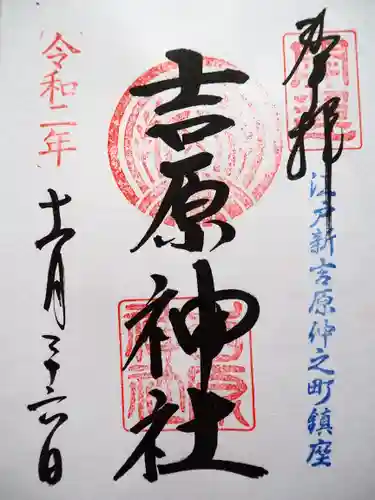 奉拝
江戸新吉原仲之町鎮座
吉原神社
令和二年
十一月二十六日